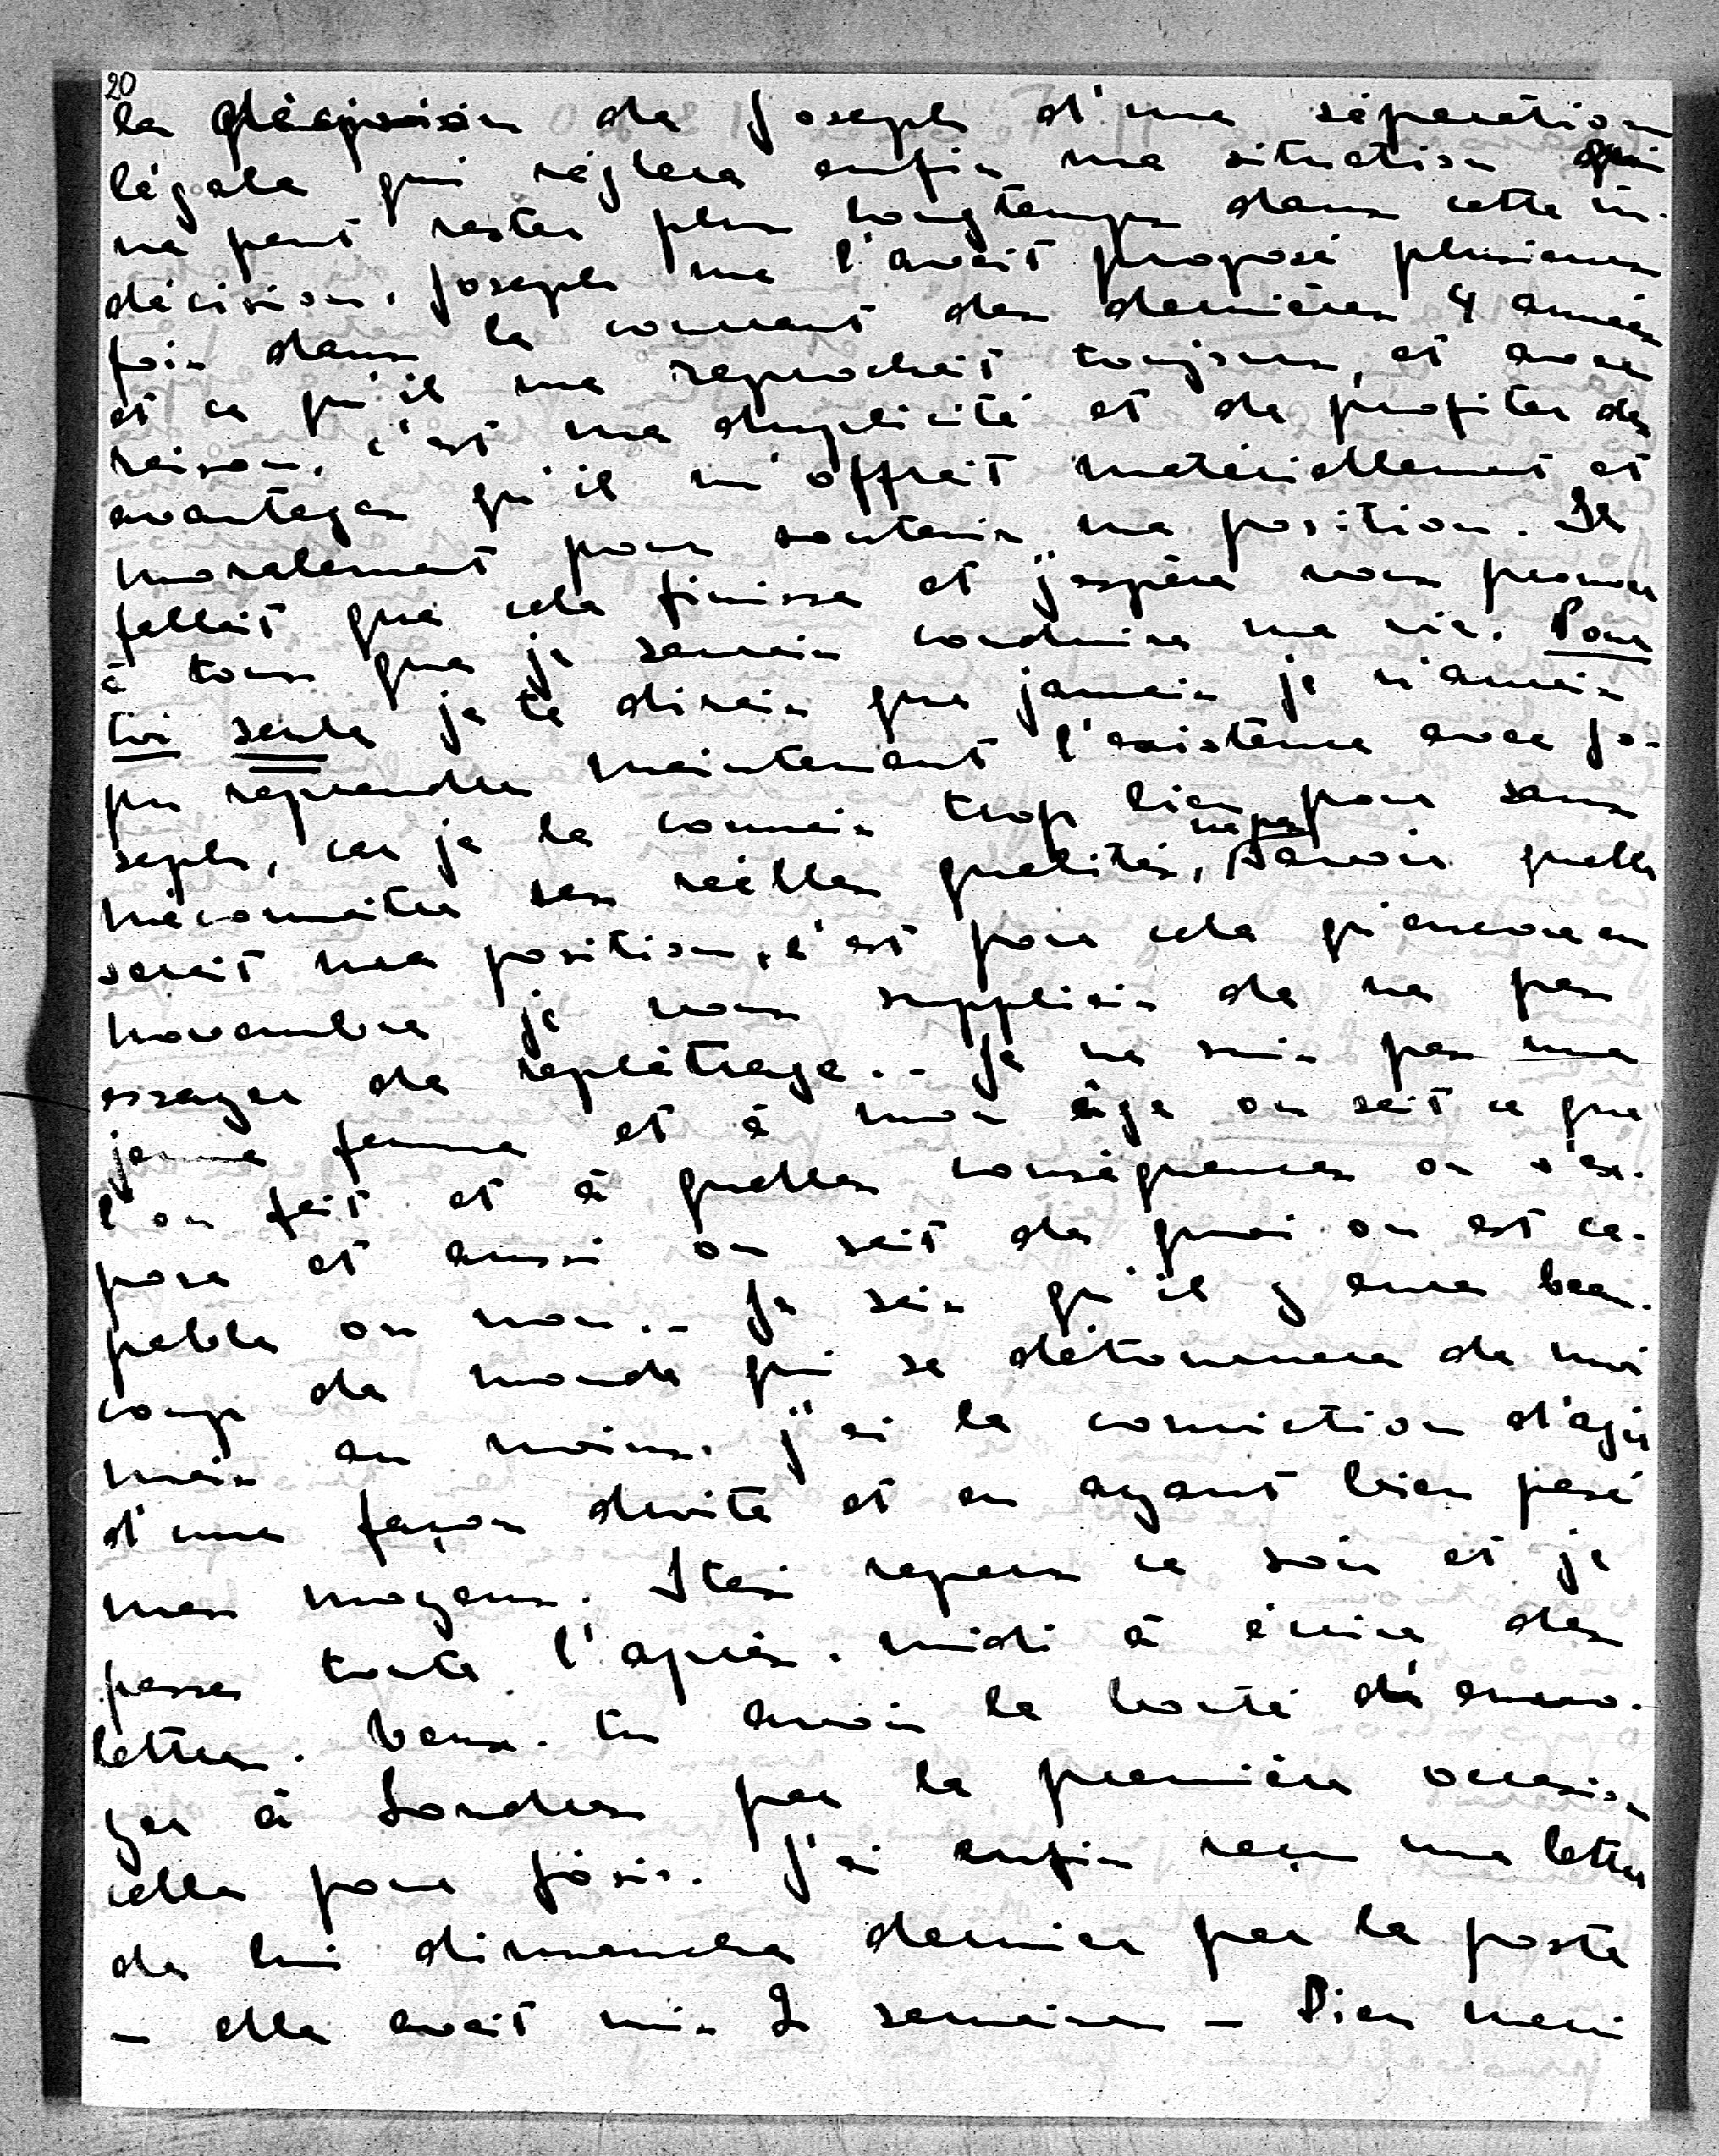 20
la décision de Joseph d'une séparation
légale qui réglera enfin ma situation qui
ne peut rester plus longtemps dans cette in-
décision. Joseph me l'avait proposé plusieurs
fois dans le courant des dernières 4 années
et ce qu'il me reprochait toujours, et avec
raison, c'est ma duplicité et de profiter des
avantages qu'il m'offrait matériellement et
moralement pour soutenir ma position. Il
fallait que cela finisse et j'espère vous prouver
à tous que je saurais conduire ma vie. Pour
toi seule je te dirais que jamais je n'aurais
pu reprendre maintenant l'existence avec Jo-
seph, car je le connais trop bien pour sans
méconnaître ses réelles qualités, ne pas savoir quelle
serait ma position, c'est pour cela qu'encore en
novembre je vous suppliais de ne pas
essayer de replâtrage.. Je ne suis pas une
jeune femme et à mon âge on sait ce que
l'on fait et à quelles conséquences on s'ex-
pose et aussi on sait de quoi on est ca-
pable ou non.. Je sais qu'il y aura beau-
coup de monde qui se détournera de moi
mais au moins j'ai la conviction d'agir
d'une façon droite et en ayant bien pesé
mes moyens. Stasi repars ce soir et je
passe toute l'après-midi à écrire des
lettres. Veux-tu avoir la bonté d'envo-
yer à Londres par la première occasion
celle pour Józio. J'ai enfin reçu une lettre
de lui dimanche dernier par la poste
- elle avait mis 2 semaines - Dieu merci